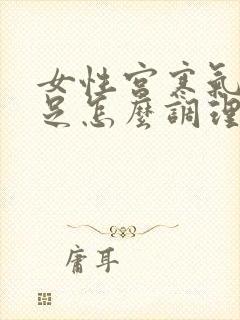 女性宮寒氣
足怎麼調理
庸耳